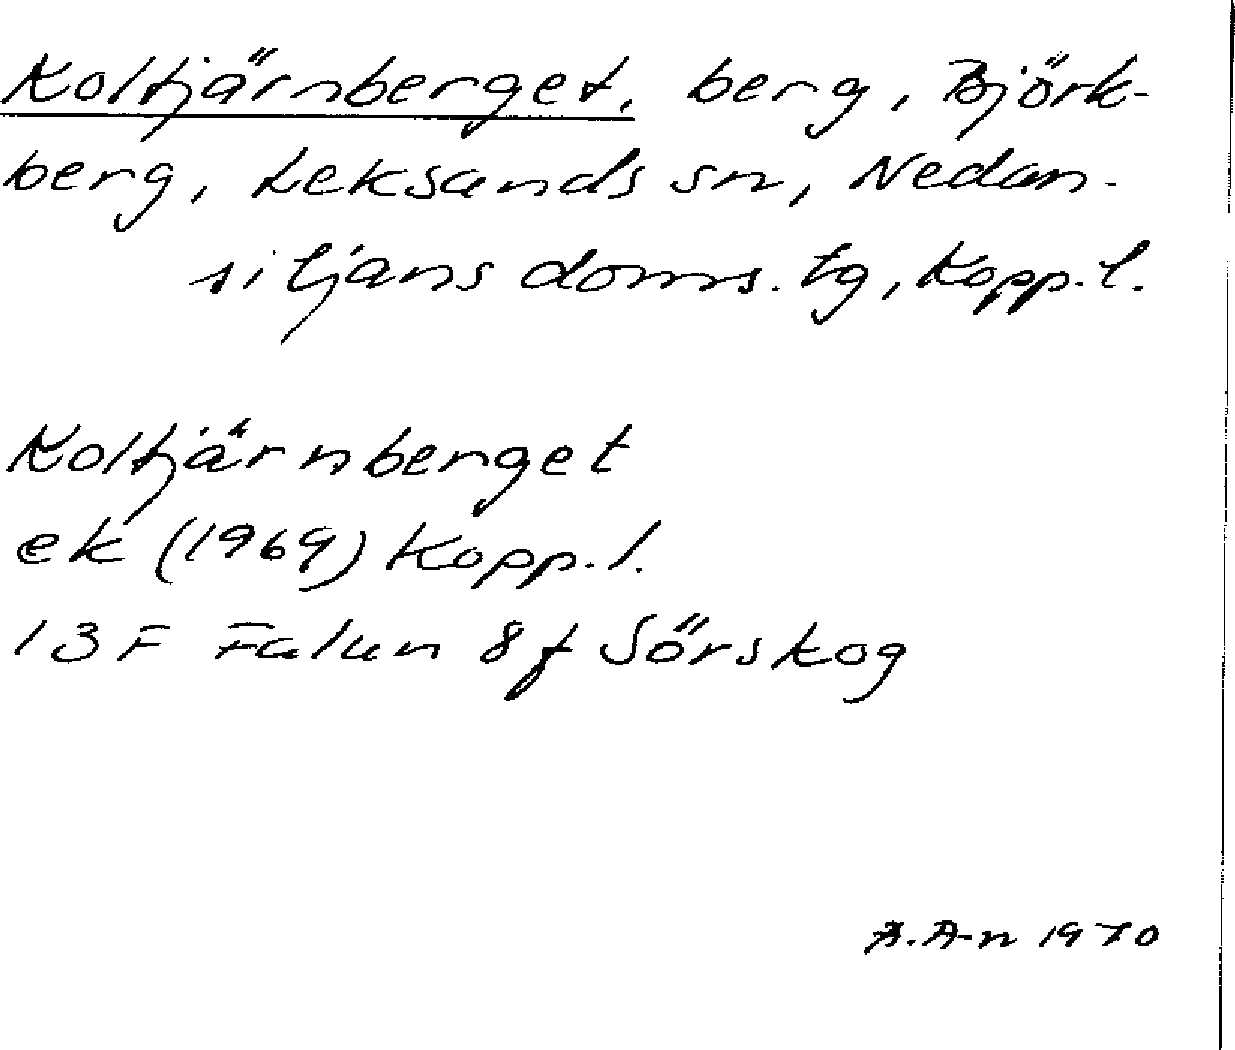 Koltjärnberget, berg, Björk-
berg, Leksands sn, Nedan-
siljans doms. tg, Kopp. l.
Koltjärnberget
ek (1969) Kopp. l.
13F Falun 8f Sörskog
A. A-n 1970